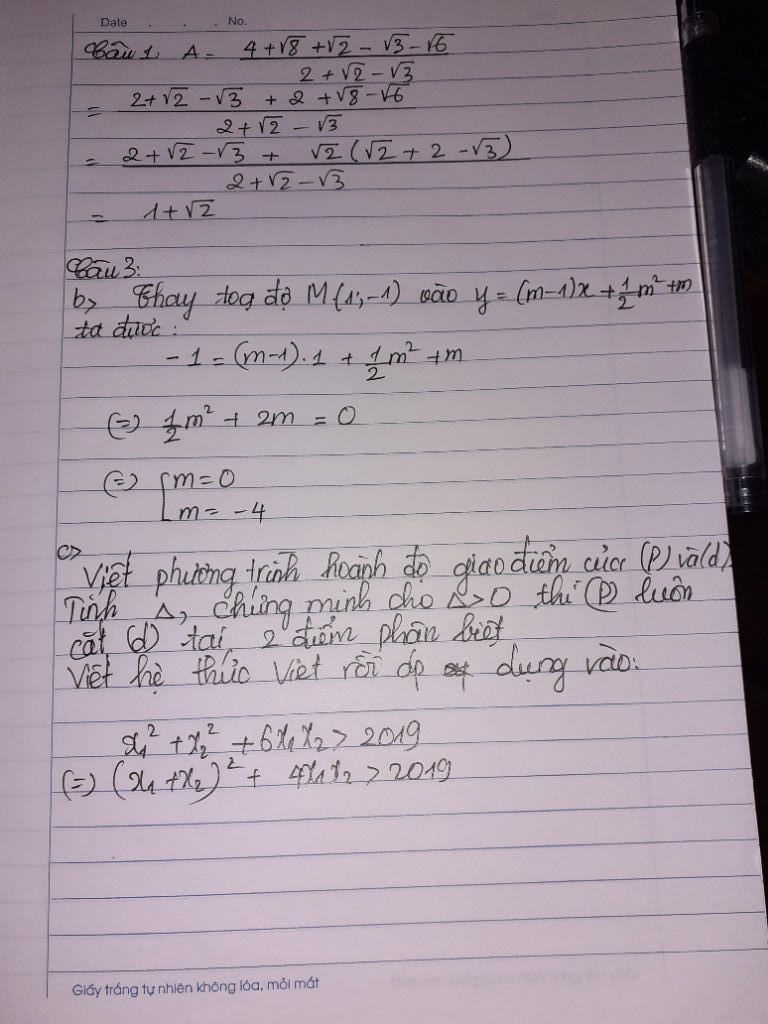 Date . . . No.
Câu 1: A = (4 + √8 + √2 - √3 - √6) / (2 + √2 - √3)
= (2 + √2 - √3 + 2 + √8 - √6) / (2 + √2 - √3)
= (2 + √2 - √3 + √2(√2 + 2 - √3)) / (2 + √2 - √3)
= 1 + √2
Câu 3:
b> Thay toạ độ M(1;-1) vào y = (m-1)x + 1/2 m² + m
ta được:
-1 = (m-1).1 + 1/2 m² + m
(=) 1/2 m² + 2m = 0
(=) [ m = 0
m = -4
c>
Viết phương trình hoành độ giao điểm của (P) và (d)
Tính Δ, chứng minh cho Δ > 0 thì (P) luôn
cắt (d) tại 2 điểm phân biệt
Viết hệ thức Viet rồi áp dụng vào:
x₁² + x₂² + 6x₁x₂ > 2019
(=) (x₁ + x₂)² + 4x₁x₂ > 2019
Giấy trắng tự nhiên không lóa, mỏi mắt